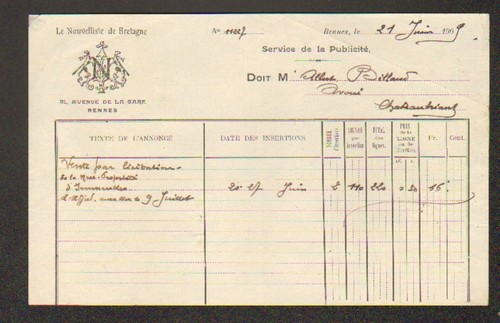 Le Nouvelliste de Bretagne
N° 11227
Rennes, le 21 Juin 1909
Service de la Publicité.
DOIT M
Avoué
Chateaubriant
31, AVENUE DE LA GARE
RENNES
TEXTE DE L'ANNONCE DATE DES INSERTIONS NOMBRE d'insertions LIGNES par insertion TOTAL des lignes PRIX de la LIGNE ou de l'insertion Fr. Cent.
Vente par licitation
de la Nue-Propriété
d'Immeubles 20 27 Juin 2 110 220
9 Juillet